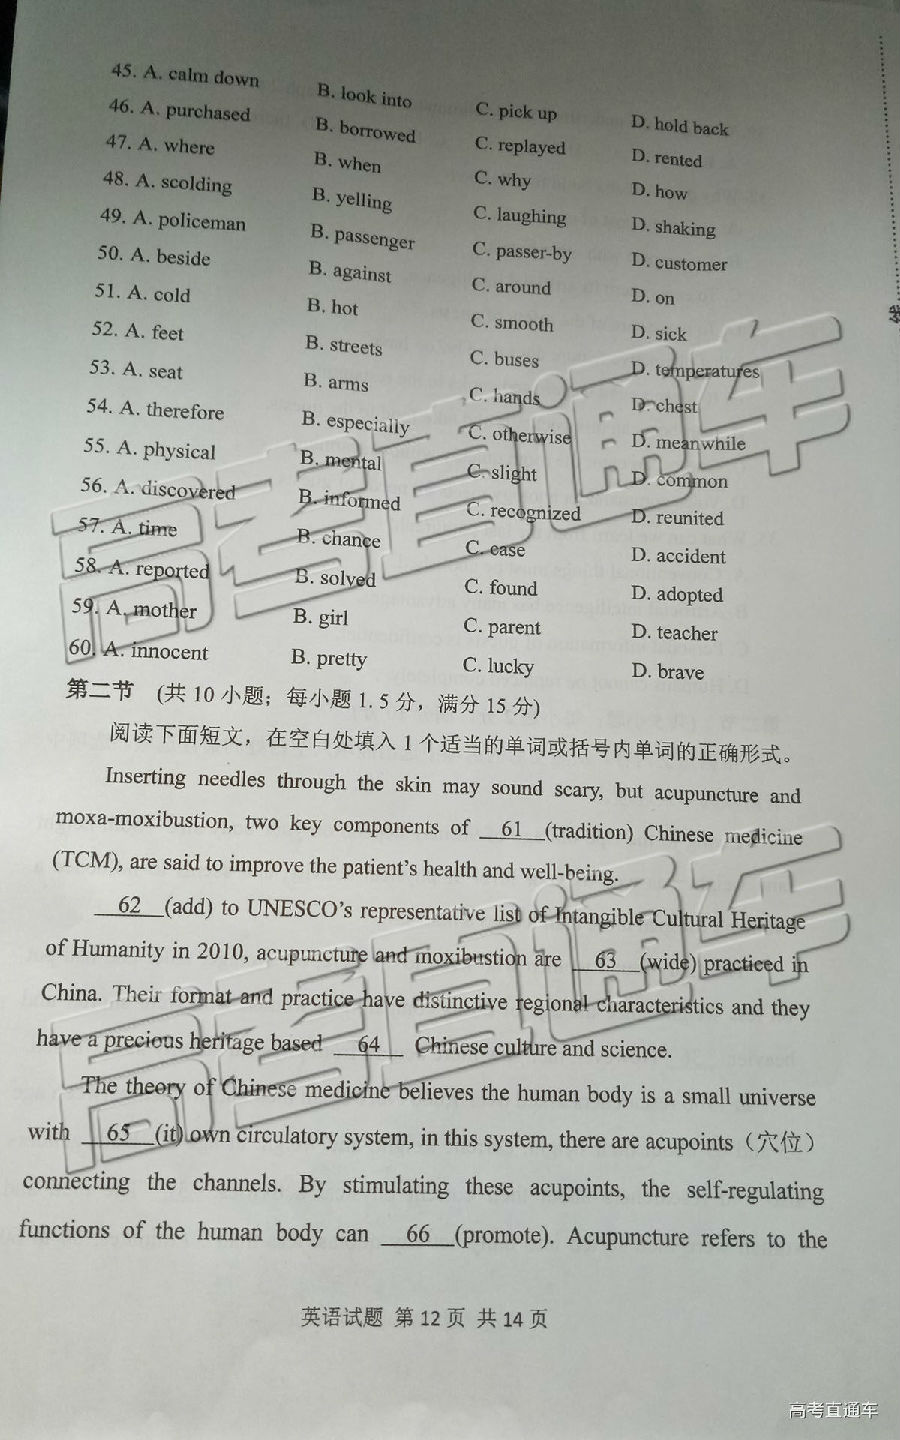 45. A. calm down B. look into C. pick up D. hold back
46. A. purchased B. borrowed C. replayed D. rented
47. A. where B. when C. why D. how
48. A. scolding B. yelling C. laughing D. shaking
49. A. policeman B. passenger C. passer-by D. customer
50. A. beside B. against C. around D. on
51. A. cold B. hot C. smooth D. sick
52. A. feet B. streets C. buses D. temperatures
53. A. seat B. arms C. hands D. chest
54. A. therefore B. especially C. otherwise D. meanwhile
55. A. physical B. mental C. slight D. common
56. A. discovered B. informed C. recognized D. reunited
57. A. time B. chance C. case D. accident
58. A. reported B. solved C. found D. adopted
59. A. mother B. girl C. parent D. teacher
60. A. innocent B. pretty C. lucky D. brave
第二节 (共 10 小题；每小题 1.5 分，满分 15 分)
阅读下面短文，在空白处填入 1 个适当的单词或括号内单词的正确形式。
Inserting needles through the skin may sound scary, but acupuncture and
moxa-moxibustion, two key components of 61 (tradition) Chinese medicine
(TCM), are said to improve the patient's health and well-being.
62 (add) to UNESCO's representative list of Intangible Cultural Heritage
of Humanity in 2010, acupuncture and moxibustion are 63 (wide) practiced in
China. Their format and practice have distinctive regional characteristics and they
have a precious heritage based 64 Chinese culture and science.
The theory of Chinese medicine believes the human body is a small universe
with 65 (it) own circulatory system, in this system, there are acupoints（穴位）
connecting the channels. By stimulating these acupoints, the self-regulating
functions of the human body can 66 (promote). Acupuncture refers to the
英语试题 第 12 页 共 14 页
高考直通车
高考直通车
高考直通车